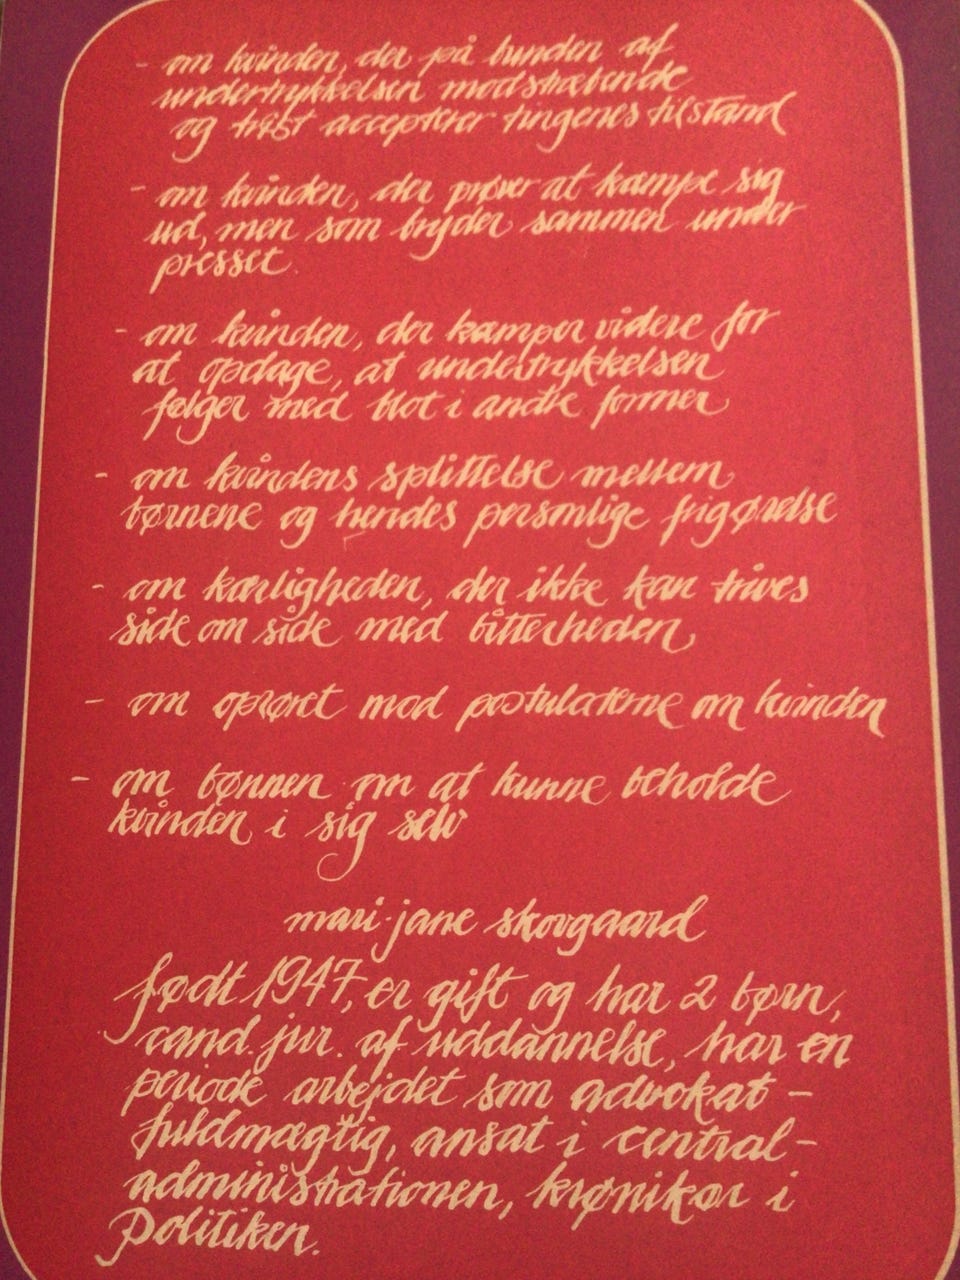 - om kvinden, der på bunden af
undertrykkelsen modstræbende
og træt accepterer tingenes tilstand
- om kvinden, der prøver at kæmpe sig
ud, men som bryder sammen under
presset.
- om kvinden, der kæmper videre for
at opdage, at undertrykkelsen
følger med blot i andre former
- om kvindens splittelse mellem
børnene og hendes personlige frigørelse
- om kærligheden, der ikke kan trives
side om side med bitterheden,
- om oprøret mod postulaterne om kvinden
- om bønnen om at kunne beholde
kvinden i sig selv
mari-jane skovgaard
født 1947, er gift og har 2 børn,
cand. jur. af uddannelse, har en
periode arbejdet som advokat-
fuldmægtig, ansat i central-
administrationen, kronikør i
Politiken.